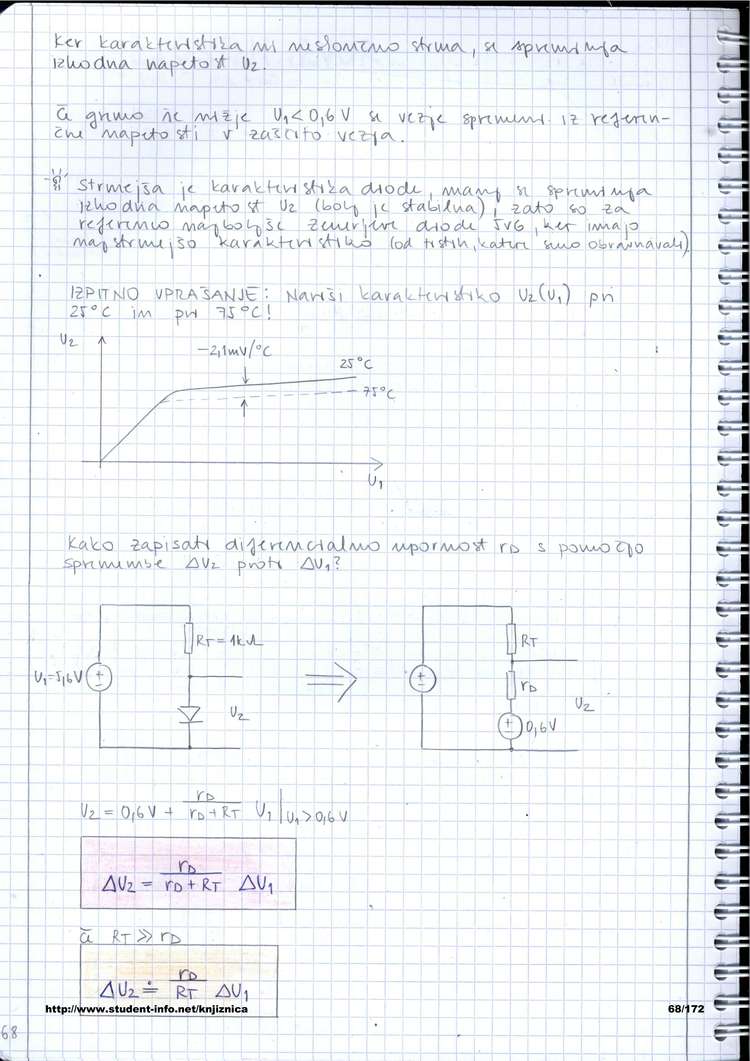 Ker karakteristika ni neskončno strma, se spreminja
izhodna napetost U2.
Če gremo še nižje U1<0,6V se vezje spremeni iz referen-
čne napetosti v zaščito vezja.
Strmejša je karakteristika diode, manj se spreminja
izhodna napetost U2 (bolj je stabilna), zato so za
referenco najboljše Zenerjeve diode 5V6, ker imajo
najstrmejšo karakteristiko (od tistih, katere smo obravnavali)
IZPITNO VPRAŠANJE: Nariši karakteristiko U2(U1) pri
25°C in pri 75°C!
U2
-2,1mV/°C
25°C
75°C
U1
Kako zapisati diferencialno upornost rD s pomočjo
spremembe ΔU2 proti ΔU1?
RT=1kΩ
RT
U1=5,6V
rD
U2
U2
0,6V
U2 = 0,6V + rD/(rD+RT) U1 | U1>0,6V
ΔU2 = rD/(rD+RT) ΔU1
če RT≫rD
ΔU2 ≐ rD/RT ΔU1
http://www.student-info.net/knjiznica
68/172
68